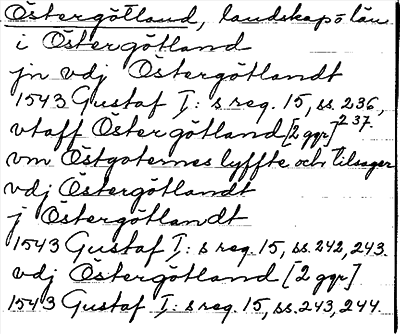 Östergötland, landskap o län
i Östergötland
jn vdj Östergötlandt
1543 Gustaf I:s reg. 15, ss. 236,
237.
vtaff Östergötland [2 ggr]
vm Östgoternes lyffte och tilsager
vdj Östergötlandt
j Östergötlandt
1543 Gustaf I:s reg. 15, ss. 242, 243.
vdj Östergötland [2 ggr]
1543 Gustaf I:s reg. 15, ss. 243, 244.